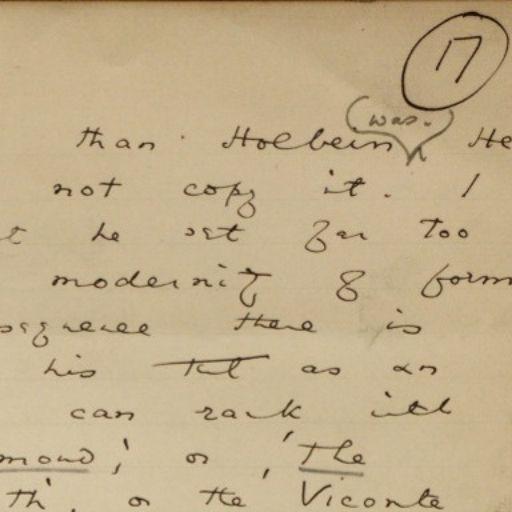 17
than Holbein was. He
not copy it. I
t he set far too
modernity of form
sequence there is
his as an
can rank with
mond,' or 'The
th', or the Viconte